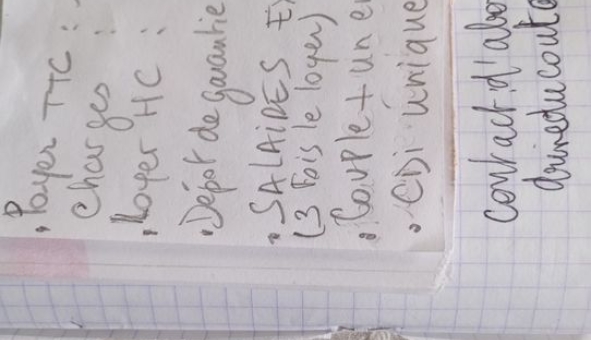 • Loyer TTC :
Charges :
• Loyer HC :
• Dépôt de garantie
• SALAIRES
(3 fois le loyer)
• Couple + un
• CDI unique
contact d'abor